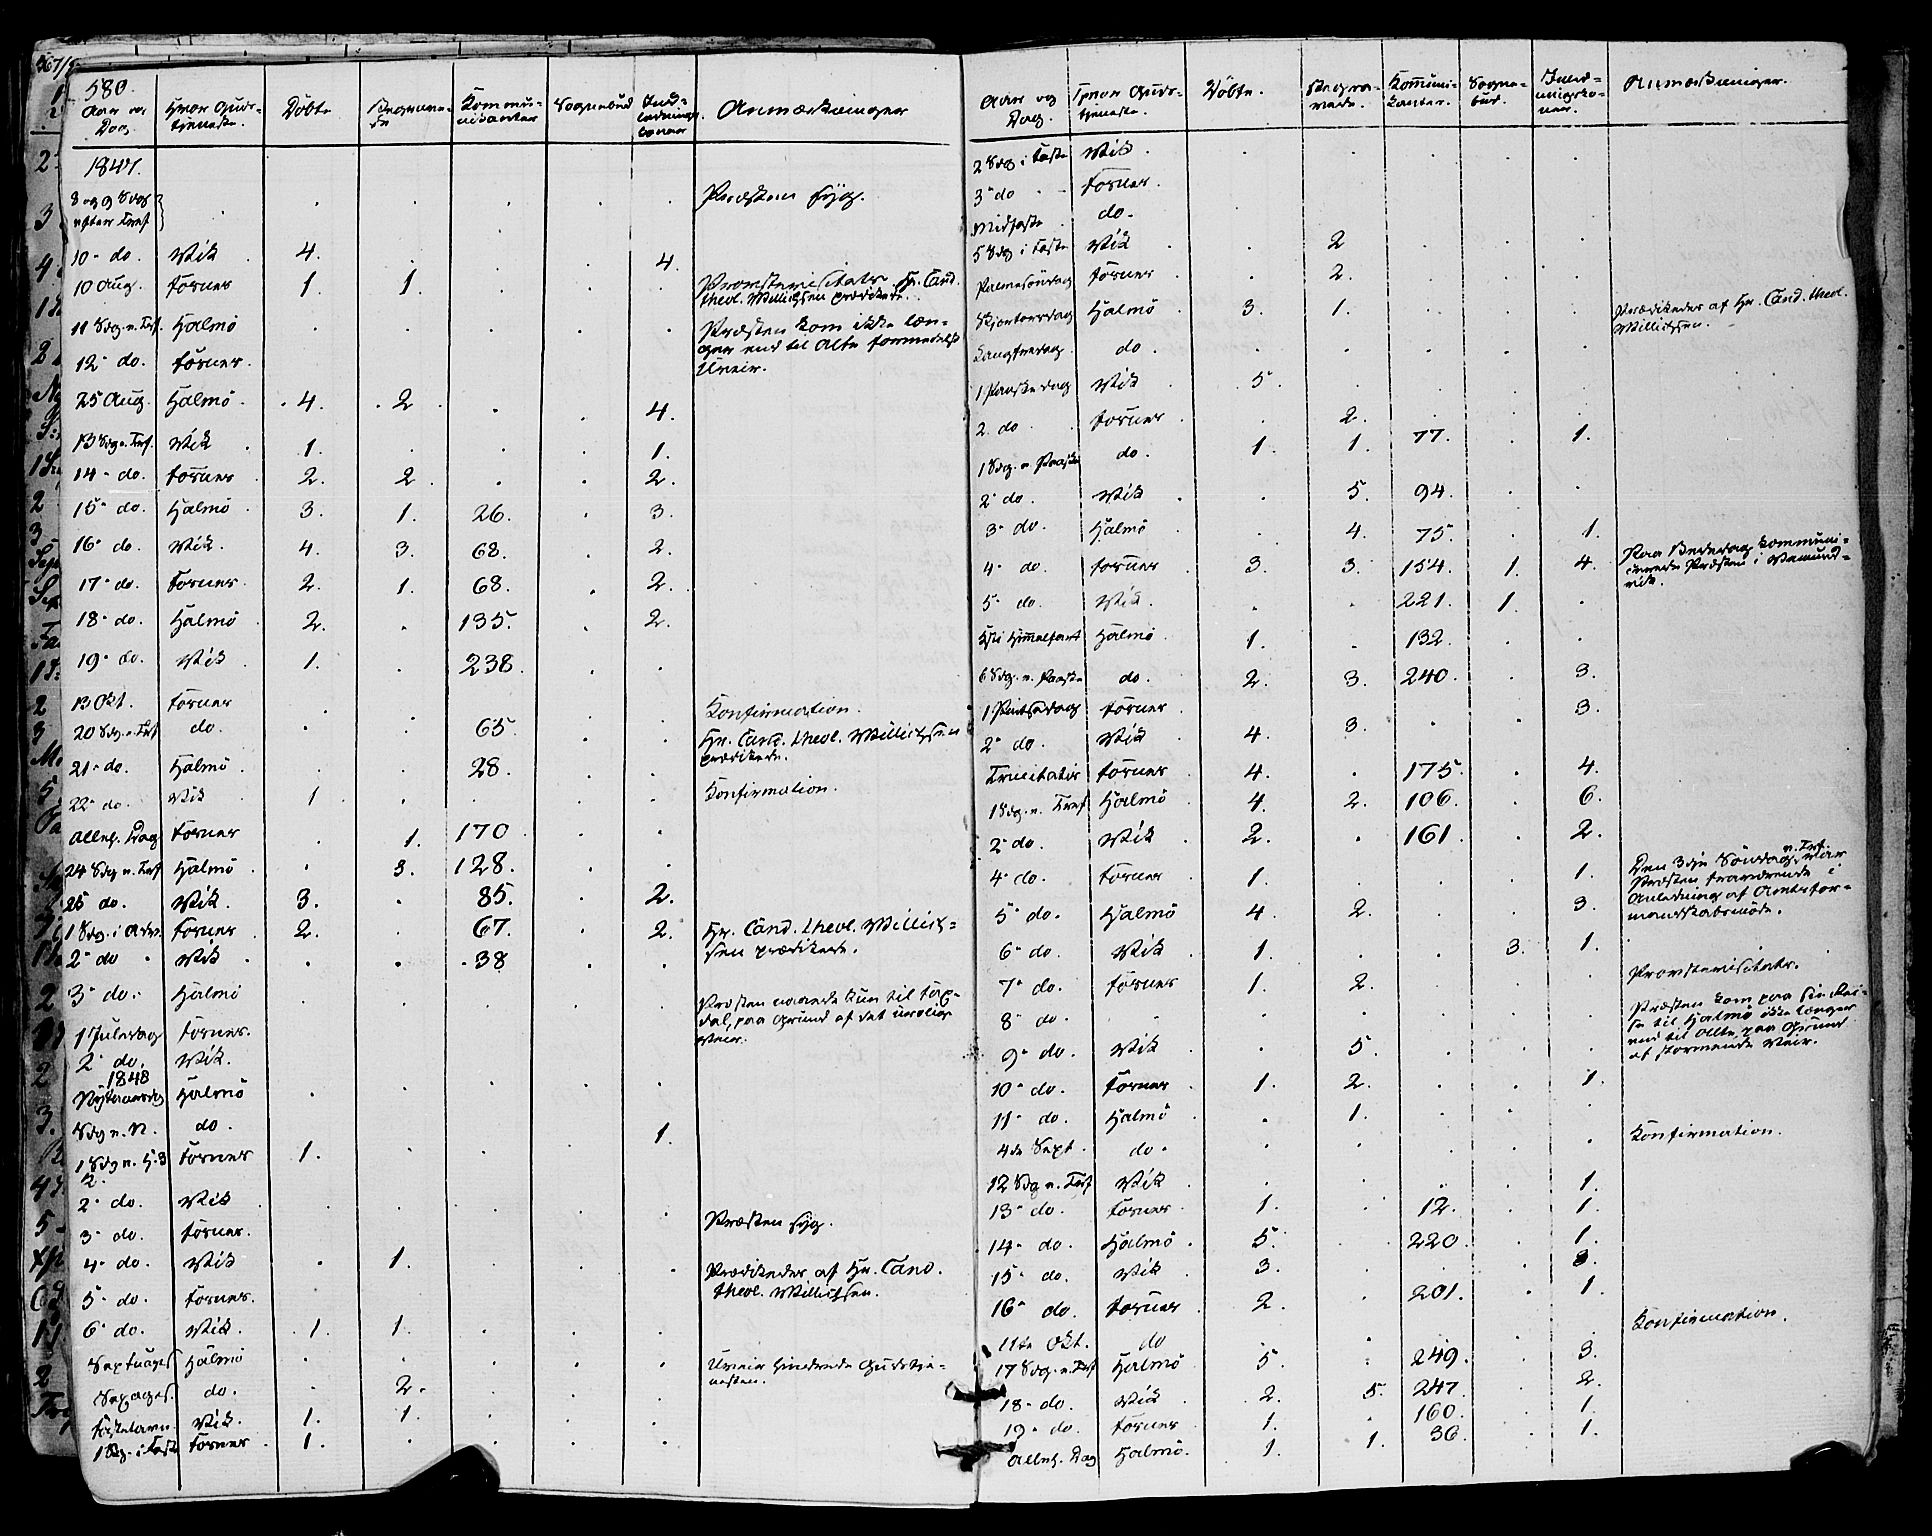 580.
Aar og Dag | Hvor Gudstjeneste. | Døbte | Begravede | Kommunikanter | Sognebud | Indledningskoner | Anmærkninger
1847.
8 og 9 Sdg efter Tref } . . . . . . Præsten syg.
10 do. Vik 4. . . . 4.
10 Aug. Forner 1. 1. . . . Provstevisitats. Hr. Cand. theol. Willichsen prædikede.
11 Sdg n. Tref. Halmø . . . . . Præsten kom ikke længer end til Alte formedelst Uveir.
12 do. Forner.
25 Aug. Halmø 4. 2 . . 4.
13 Sdg n. Tref. Vik 1. . . . 1.
14 do. Forner 2. 2. . . 2.
15 do. Halmø 3. 1. 26. . 3.
16 do. Vik. 4. 3. 68. . 2.
17 do. Forner. 2. 1. 68. . 2.
18 do. Halmø 2. . 135. . 2.
19 do. Vik 1. . 238 . .
13 Okt. Forner . . . . . Konfirmation.
20 Sdg n. Tref do. . . 65. . . Hr. Cand. theol. Willichsen prædikede.
21 do. Halmø . . 28. . .
22 do. Vik 1. . . . . Konfirmation.
Alleh. Dag Forner . 1. 170 . .
24 Sdg n. Tref Halmø . 3. 128. . .
25 do. Vik. 3. . 85. . 2.
1 Sdg. i Adv. Forner 2. . 67. . 2. Hr. Cand. theol. Willichsen prædikede.
2 do. Vik . . 38 . .
3 do. Halmø . . . . . Præsten naaede kun til dal, paa Grund af det urolige Veir.
1 Juledag Forner.
2 do. Vik.
1848
Nytaarsdag Halmø . . . . .
Sdg n. N. do. . . . . 1.
1 Sdg n. H. 3 K. Forner 1.
2 do. Vik . . . . . Præsten syg.
3 do. Forner.
4 do. Vik . 1. . . . Prædikedes af Hr. Cand. theol. Willichsen.
5 do. Forner.
6 do. Vik. 1. 1. . . .
Septuages Halmø . . . . . Uveir hindrede Gudstjenesten.
Sexages. do. . 2. . . .
Fastelavn. Vik. 1. 1. . . .
1 Sdg. i Faste Forner. 1. . . . .
Aar og Dag. | Hvor Gudstjeneste. | Døbte. | Begravede. | Kommunikanter. | Sognebud. | Indledningskoner. | Anmærkninger.
2 Sdg i Faste Vik. . . . . .
3 do Forner.
Midfaste do.
5 Sdg i Faste Vik . 2 . . .
Palmesøndag Forner . 2. . . .
Skjærtorsdag Halmø 3. 1. . . . Prædikedes af Hr. Cand. theol. Willichsen.
Langfredag do. . . . . .
1 Paaskedag Vik 5. . . . .
2 do Forner . 2. . . .
1 Sdg. n Paaske do. 1. 1. 77. . 1.
2 do. Vik . 5. 94. . .
3 do. Halmø . 4. 75. . 1.
4 do. Forner 3. 3. 154. 1. 4. Paa Bededag kommunicerede Præsten i Vemundvik.
5 do. Vik. . . 221. 1. .
Kri Himmelfart Halmø 1. . 132. . .
6 Sdg. n. Paaske do. 2. 3. 240. . 3.
1 Pintsedag Forner . . . . 3.
2 do. Vik 4. 3. . . .
Trinitatis Forner 4. . 175. . 4.
1 Sdg. n. Tref Halmø 4. 2. 106. . 6.
2 do. Vik 2. . 161. . 2.
4 do. Forner 1. . . . 1. Den 3die Søndag n. Tref. var Præsten fraværende i Anledning af Amtsformandskabsmøde.
5 do. Halmø 4. 2. . . 3.
6 do. Vik 1. . . 3. 1.
7 do. Forner 1. 2. . . . Provstevisitats.
8 do. . . . . . Præsten kom paa sin Reise til Halmø ikke længer end til Alte, paa Grund af stormende Veir.
9 do. Vik . 5. . . .
10 do. Forner 1. 2. . . 1.
11 do. Halmø . 1. . . .
4de Sept. do. . . . . . Konfirmation.
12 Sdg n. Tref Vik . . . . 1.
13 do. Forner. 1. . 12. . 1.
14 do. Halmø. 5. . 220. . 1.
15 do. Vik 3. . . . 3.
16 do. Forner 2. . 201. . 1.
11te Okt. do . . . . . Konfirmation.
17 Sdg. n. Tref Halmø 5. . 249. . 3.
18 do. Vik 2. 5. 247. . 2.
19 do. Forner 1. . 160. . 1.
Alleh. Dag Halmø. 1. 1. 36. . 1.